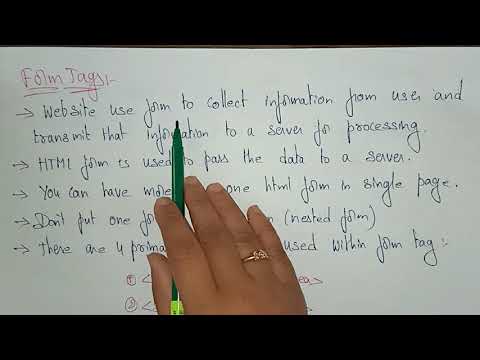 Form Tags:-
→ Website use form to collect information from user and
transmit that information to a server for processing.
→ HTML form is used to pass the data to a server.
→ You can have more one html form in single page.
→ Don't put one (nested form)
→ There are 4 used within form tag :-
① <
② <